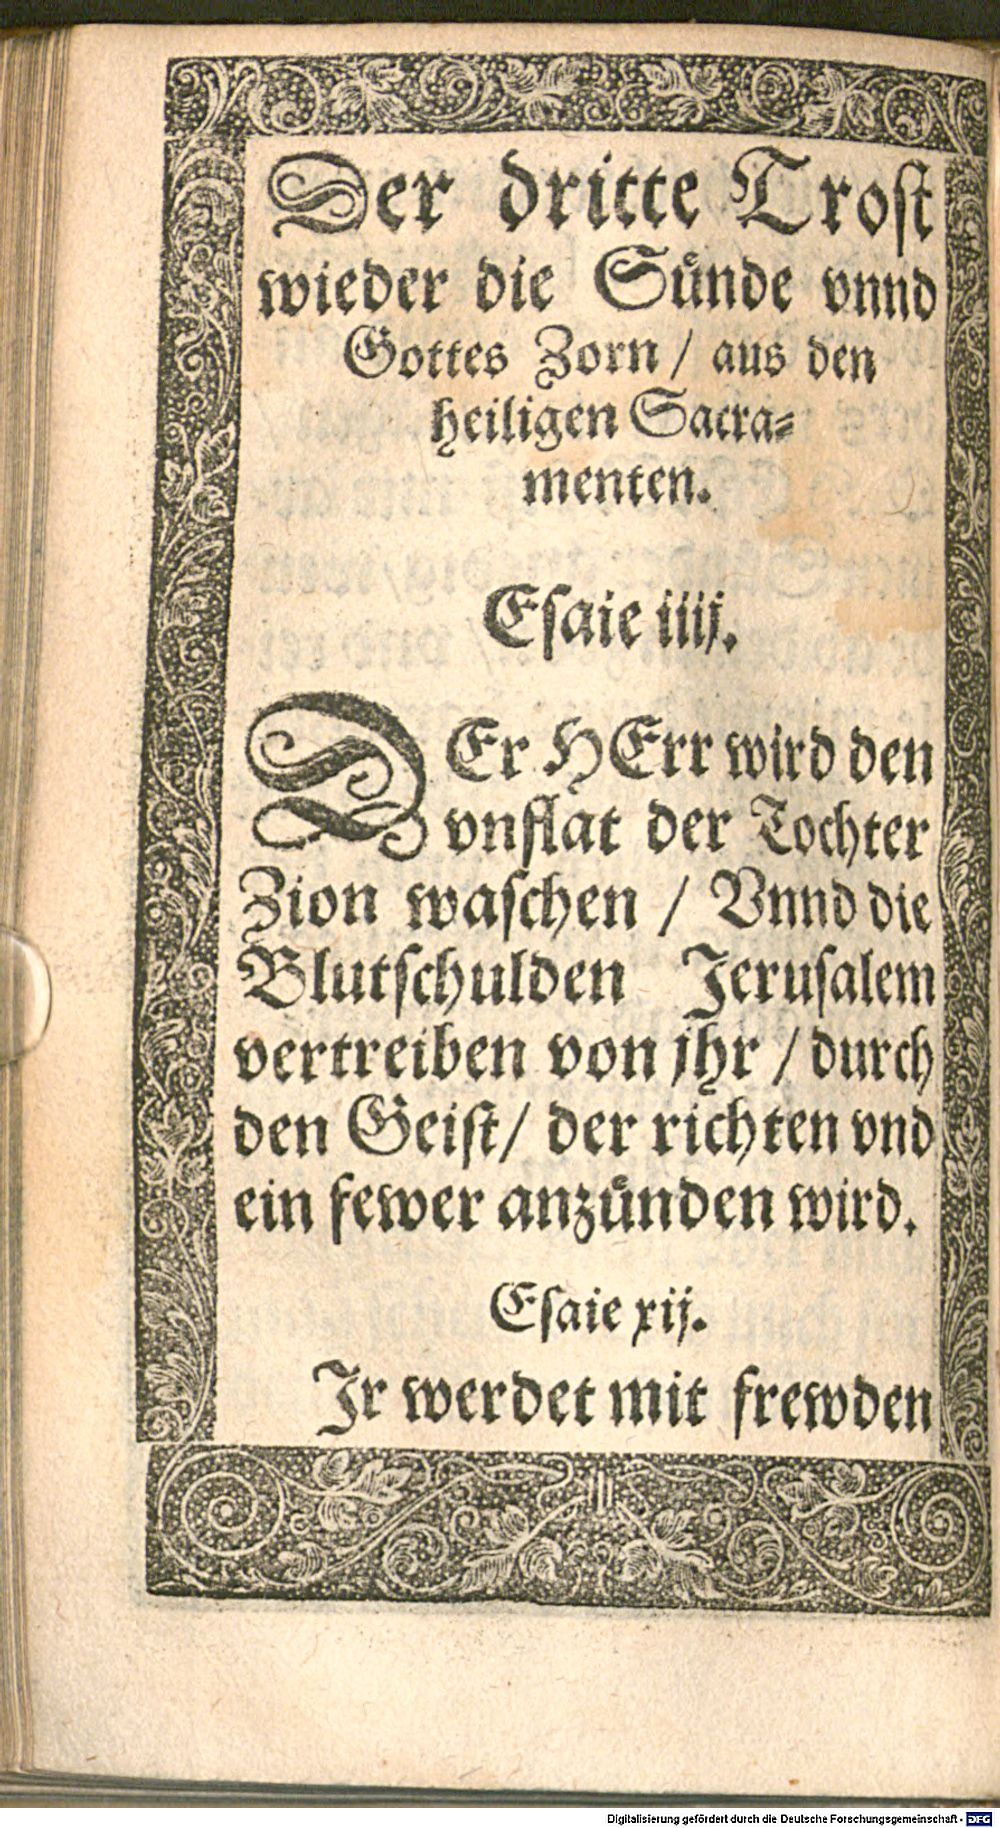 Der dritte Trost
wieder die Sünde vnnd
Gottes Zorn / aus den
heiligen Sacra⸗
menten.
Esaie iiij.
DEr HErr wird den
vnflat der Tochter
Zion waschen / Vnnd die
Blutschulden Jerusalem
vertreiben von jhr / durch
den Geist / der richten vnd
ein fewer anzünden wird.
Esaie xij.
Jr werdet mit frewden
Digitalisierung gefördert durch die Deutsche Forschungsgemeinschaft - DFG